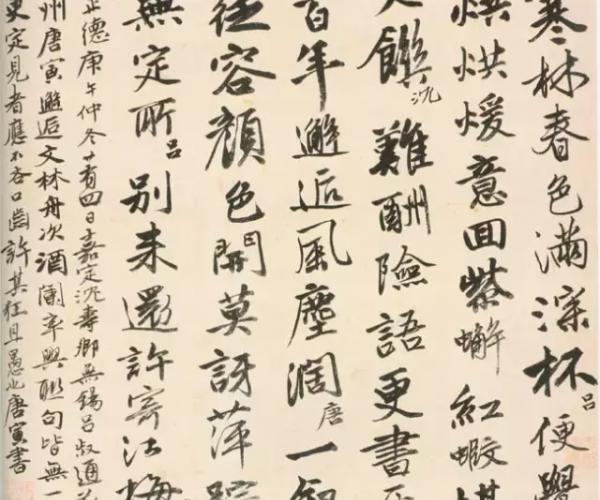 寒林春色满深杯吕便與
烘烘煖意回紫蠏紅蝦
饌沈難酬險語更書
百年邂逅風塵濶唐一
從容顏色開莫訝萍蹤
無定所吕别来還許寄江梅
正德庚午仲冬廿有四日嘉定沈壽卿無錫吕叔通
州唐寅邂逅文林舟次酒闌率興聯句皆無一
更定見者應不吝口齒許其狂且愚也唐寅書